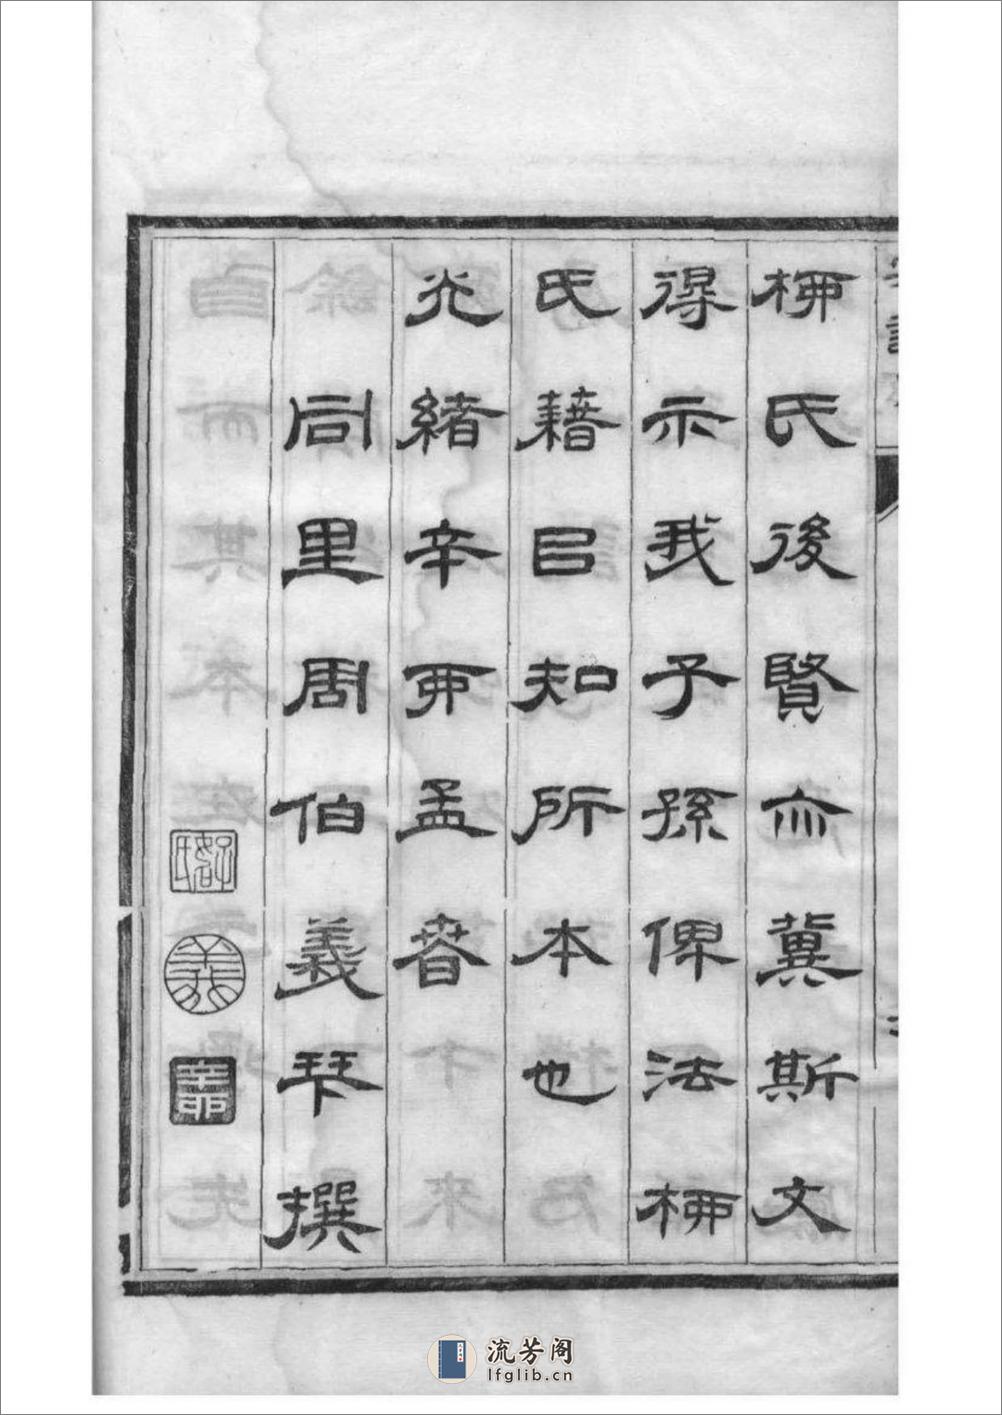 栁氏後賢亦冀斯文
得示我子孫俾法栁
氏藉㠯知所本也
光緒辛丣孟春
同里周伯義琴撰
流芳阁
lfglib.cn